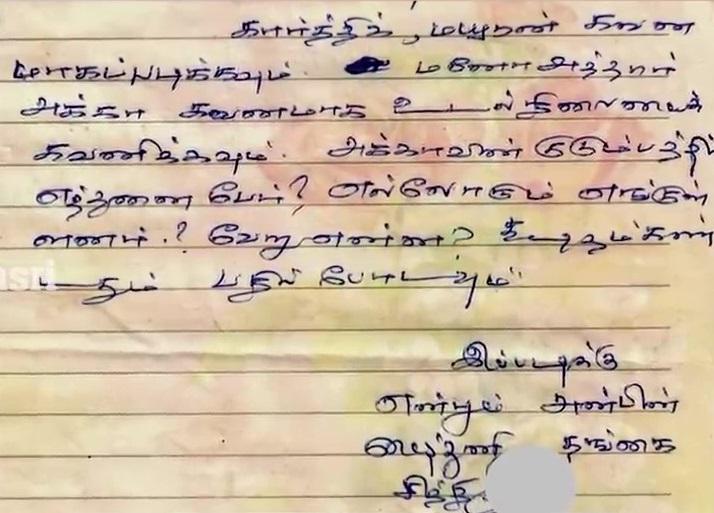 கார்த்திக், மயூரன் கவன
மாகப்படிக்கவும். மனோ அத்தான்
அக்கா கவனமாக உடல்நிலையைக்
கவனிக்கவும். அக்காவின் குடும்பத்தில்
எத்தனை பேர்? எல்லோரும் எங்குள்
ளனர்.? வேறு என்ன? கடிதம் கண்
டதும் பதில் போடவும்"
இப்படிக்கு
என்றும் அன்பின்
தங்கை